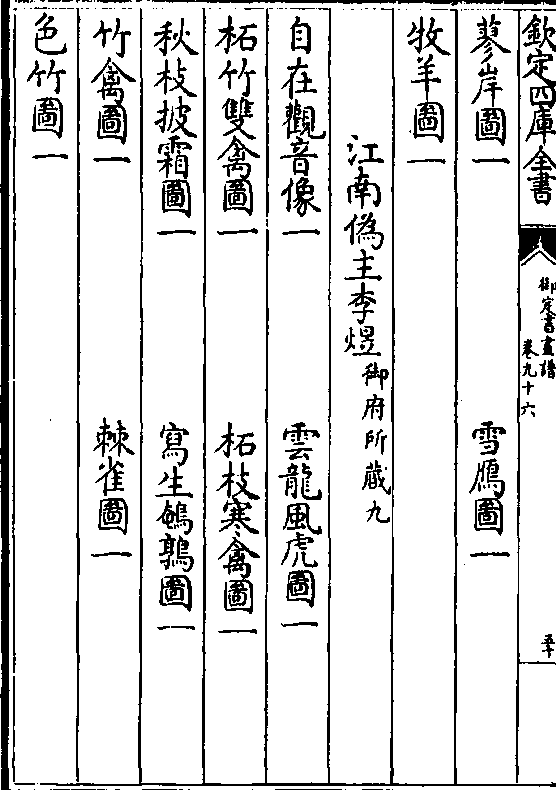 欽定四庫全書
御定書畫譜
卷九十六
五十
蓼岸圖一 雪鴈圖一
牧羊圖一
江南偽主李煜御府所藏九
自在觀音像一 雲龍風虎圖一
柘竹雙禽圖一 柘枝寒禽圖一
秋枝披霜圖一 寫生鵪鶉圖一
竹禽圖一 棘雀圖一
色竹圖一